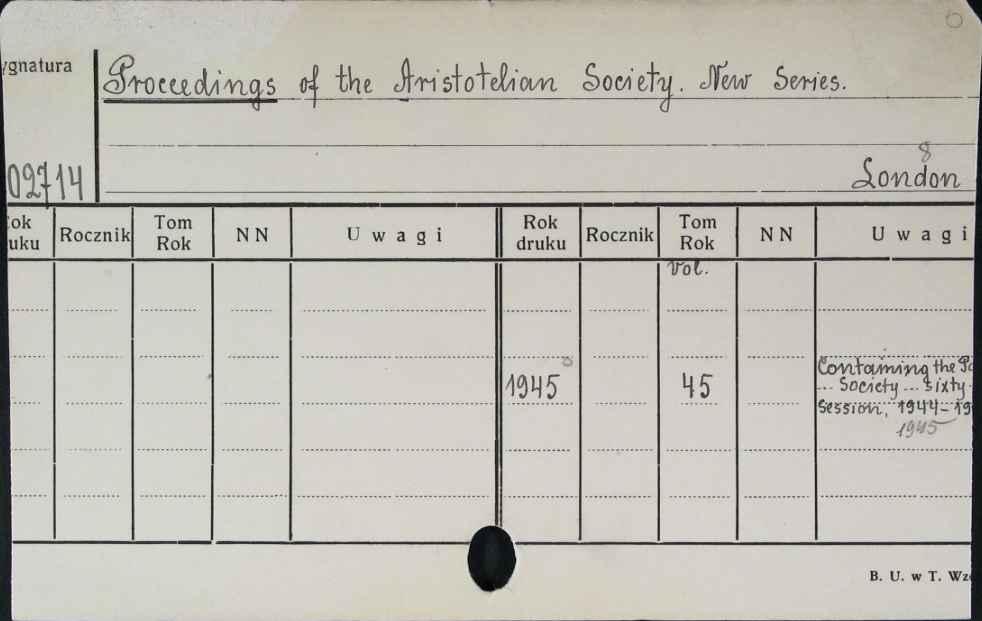 6
ygnatura
Proceedings of the Aristotelian Society. New Series.
8
02714
London
ok uku Rocznik Tom Rok NN Uwagi Rok druku Rocznik Tom Rok NN Uwagi
Vol.
1945 45 Containing the Pa
... Society ... sixty-
Session, 1944-19
1945
B. U. w T. Wz